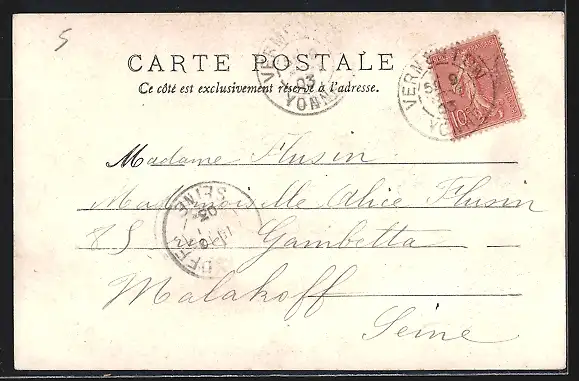 5
CARTE POSTALE
Ce côté est exclusivement réservé à l'adresse.
VERMENTON
03
YONNE
VERMENTON
9
03
YONNE
10
Madame Flusin
Mademoiselle Alice Flusin
85 rue Gambetta
Malakoff
Seine
SEINE
03